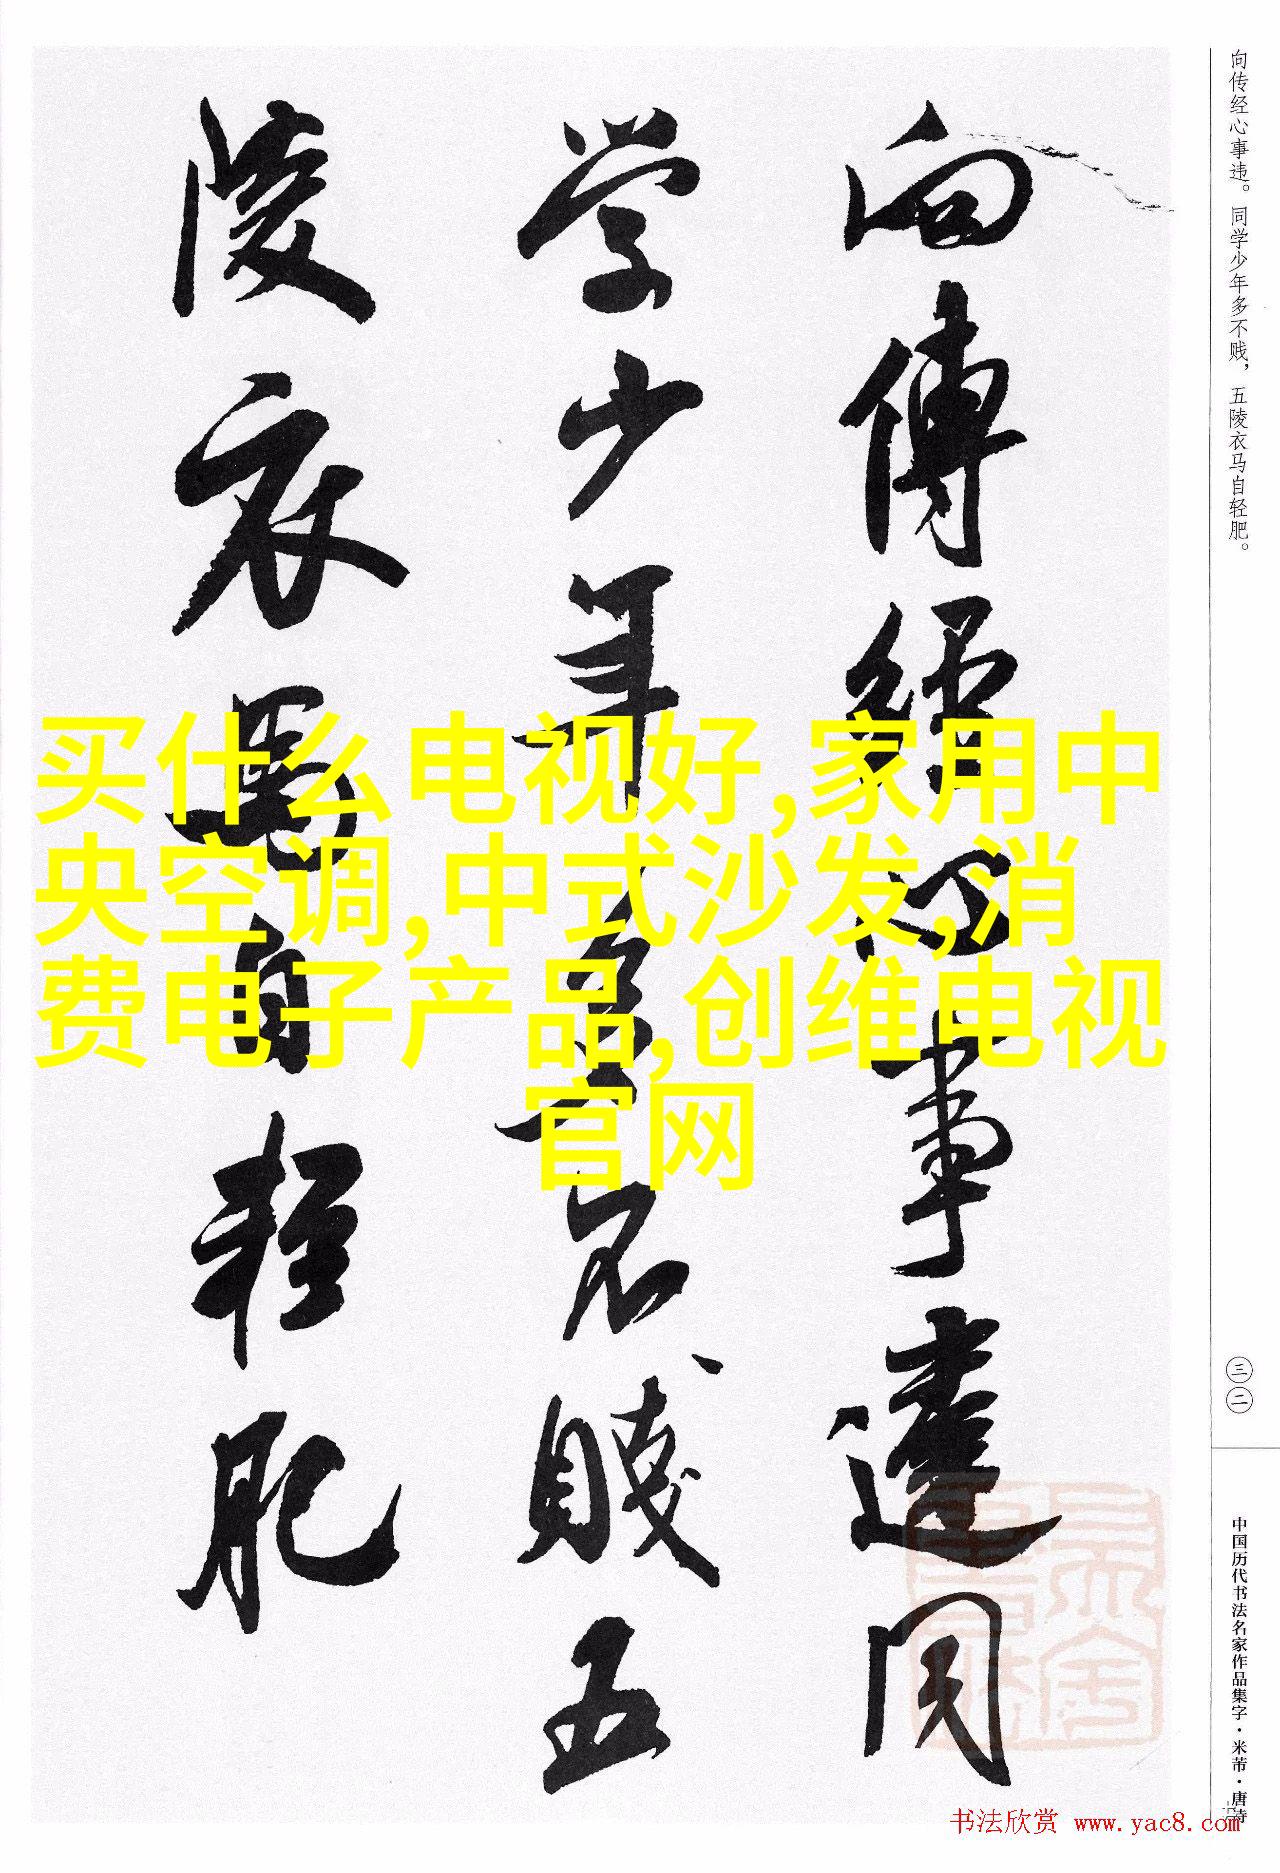 向传经心事违。同学少年多不贱，五陵衣马自轻肥。
向傳經心事違同
学少年多不賤五
陵衣馬自輕肥
买什么电视好,家用中
央空调,中式沙发,消
费电子产品,创维电视
官网
三二
中国历代书法名家作品集字·米芾·唐诗
书法欣赏 www.yac8.com